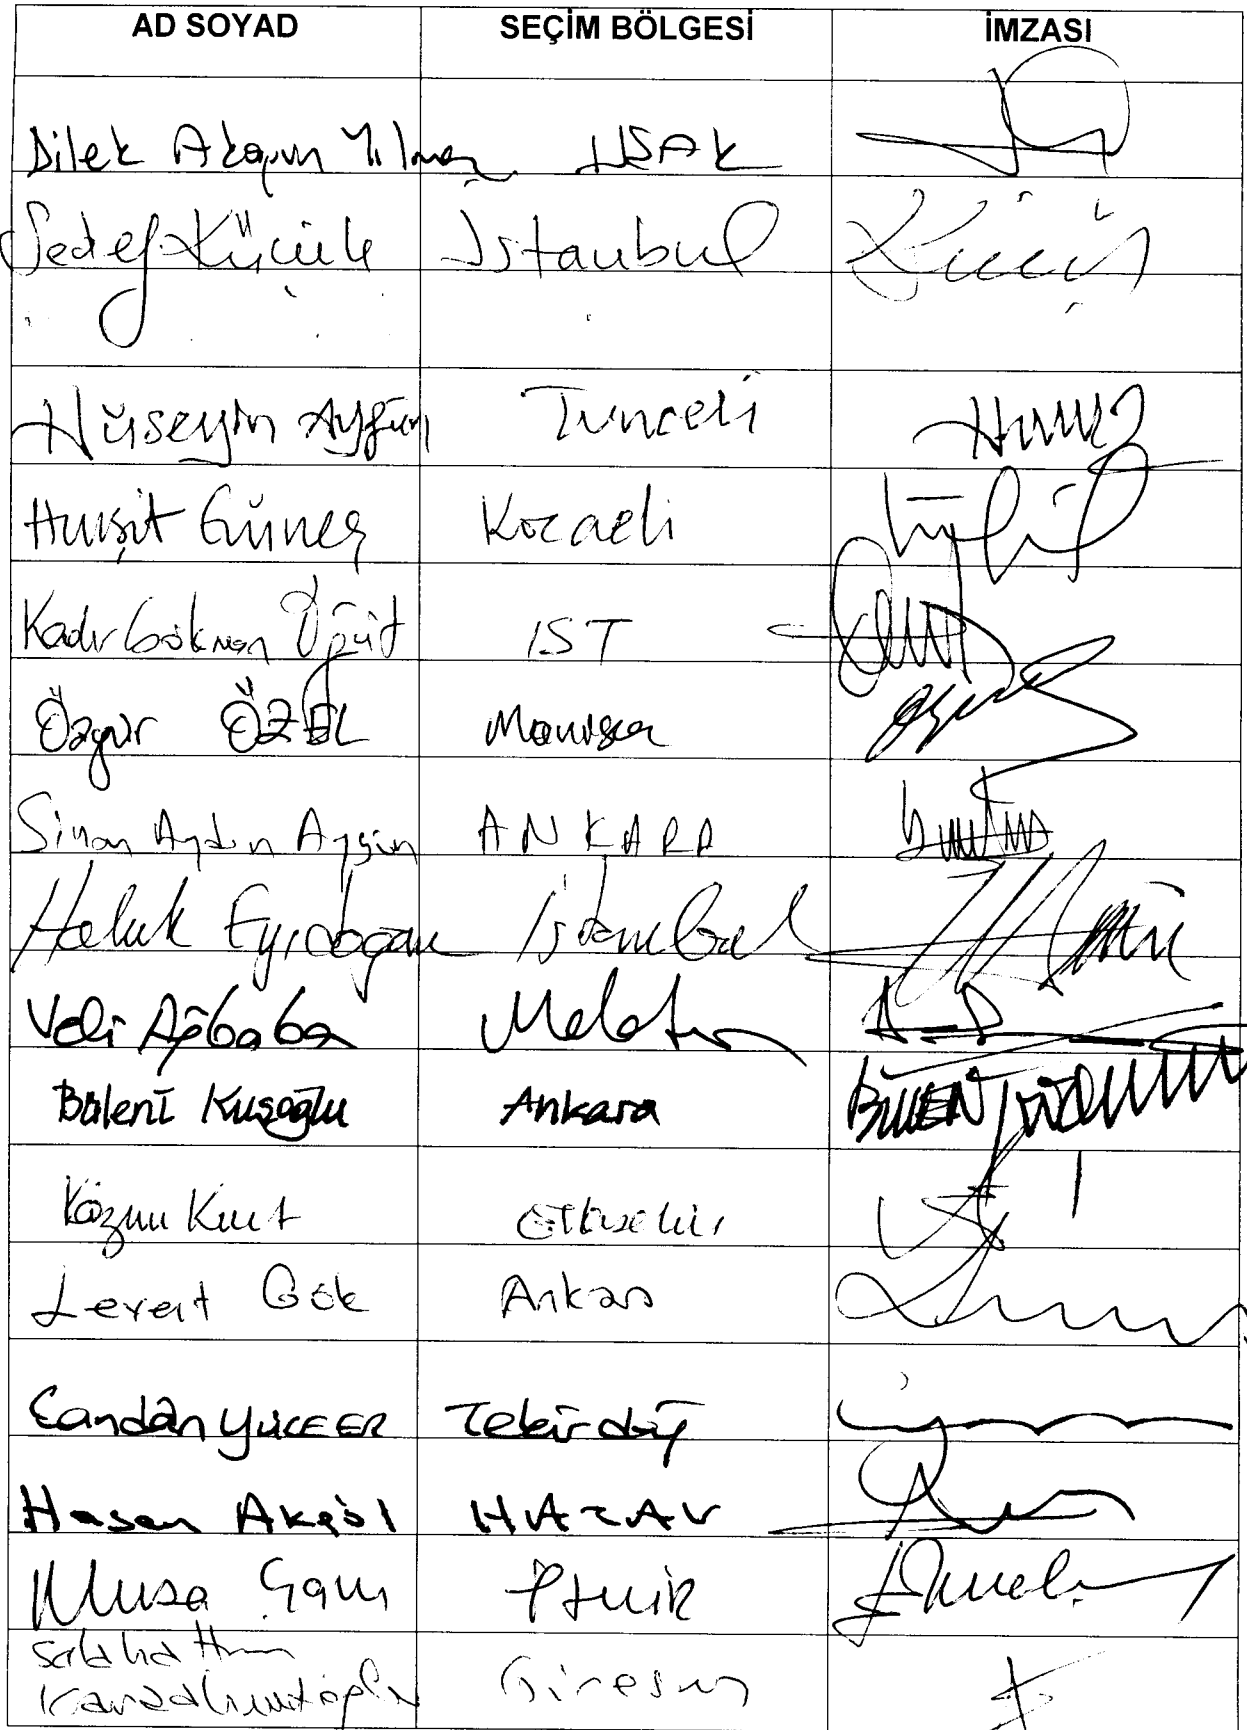 AD SOYAD SEÇİM BÖLGESİ İMZASI
Dilek Akagün Yılmaz UŞAK
Sedef Küçük İstanbul
Hüseyin Aygün Tunceli
Hurşit Güneş Kocaeli
Kadir Gökmen Öğüt İST
Özgür ÖZEL Manisa
Sinan Aydın Aygün ANKARA
Haluk Eyidoğan İstanbul
Veli Ağbaba Malatya
Bülent Kuşoğlu Ankara
Kazım Kurt Eskişehir
Levent Gök Ankara
Candan YÜCEER Tekirdağ
Hasan Akgöl HATAY
Musa Çam İzmir
Selahattin
Karaahmetoğlu Giresun